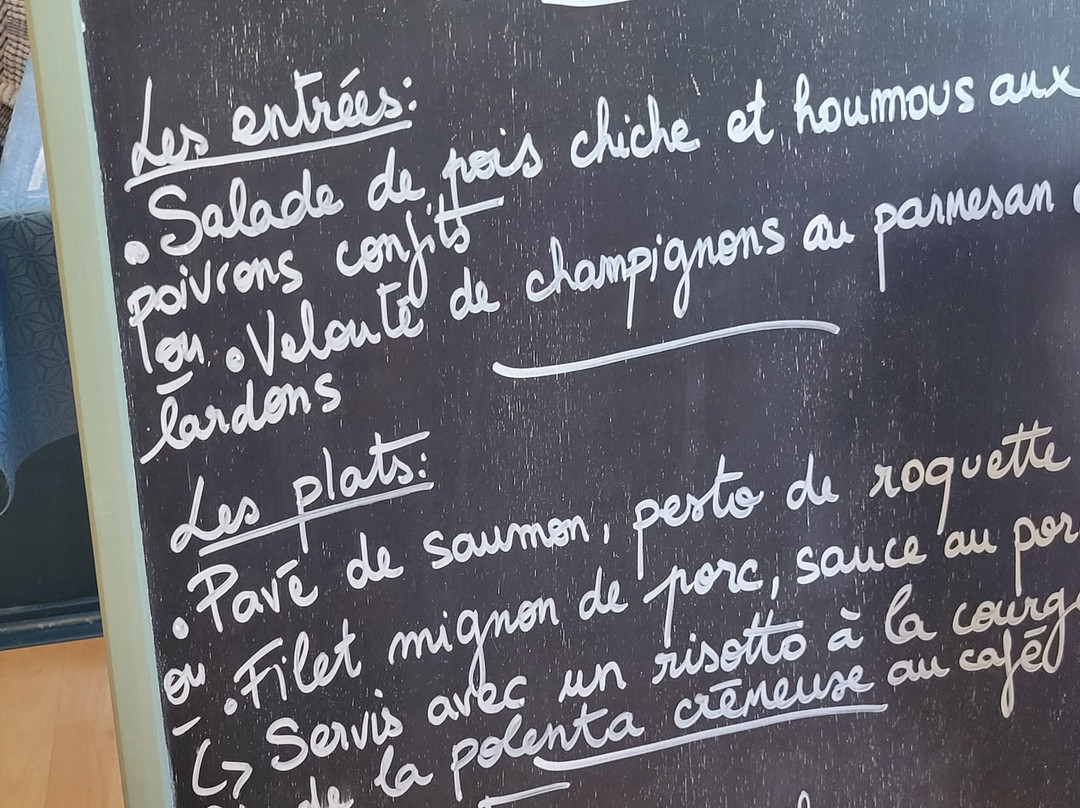 Les entrées:
• Salade de pois chiche et houmous aux
poivrons confits
ou • Velouté de champignons au parmesan
lardons
Les plats:
• Pavé de saumon, pesto de roquette
ou • Filet mignon de porc, sauce au por
↳ Servis avec un risotto à la courg
de la polenta crémeuse au café